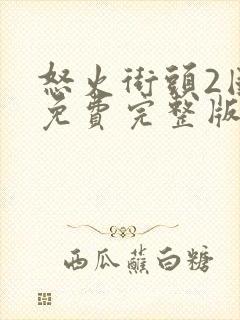 怒火街頭2
免費完整版
西瓜蘸白糖